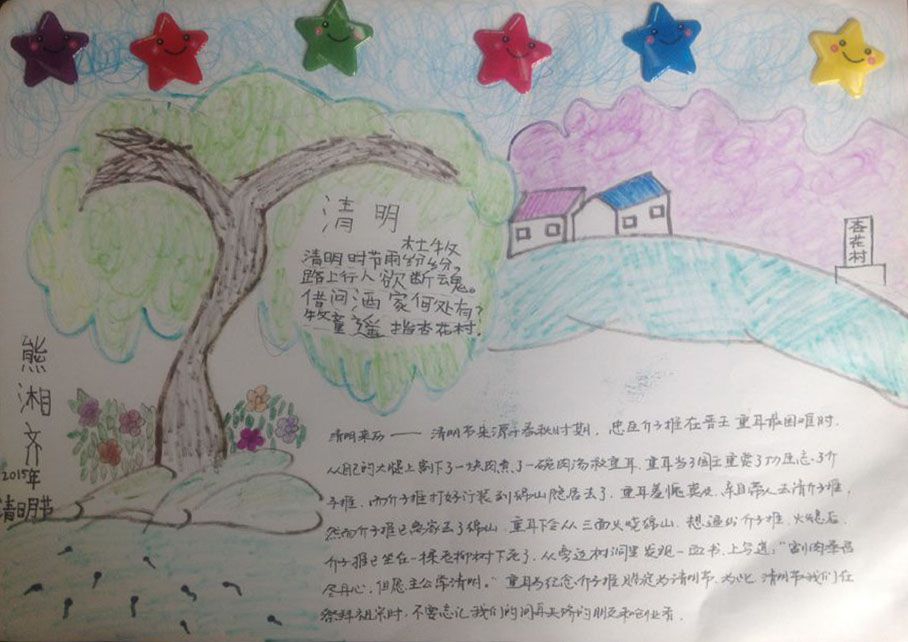 清明
杜牧
清明时节雨纷纷,
路上行人欲断魂。
借问酒家何处有?
牧童遥指杏花村!
杏花村
熊湘齐
2015年
清明节
清明来历——清明节来源于春秋时期,忠臣介子推在晋王重耳最困难时,
从自己的大腿上割下了一块肉煮了一碗肉汤救重耳,重耳当了国王重赏了功臣忘了介
子推,而介子推打好行装到绵山隐居去了,重耳羞愧莫及,亲自带人去请介子推,
然而介子推已离家去了绵山,重耳下令从三面火烧绵山,想逼出介子推,火熄后,
介子推已坐在一棵老柳树下死了,从旁边树洞里发现一血书,上写道:"割肉奉君
尽丹心,但愿主公常清明。"重耳为纪念介子推将定为清明节,为此,清明节我们在
祭拜祖宗时,不要忘记我们的同甘共济的朋友和